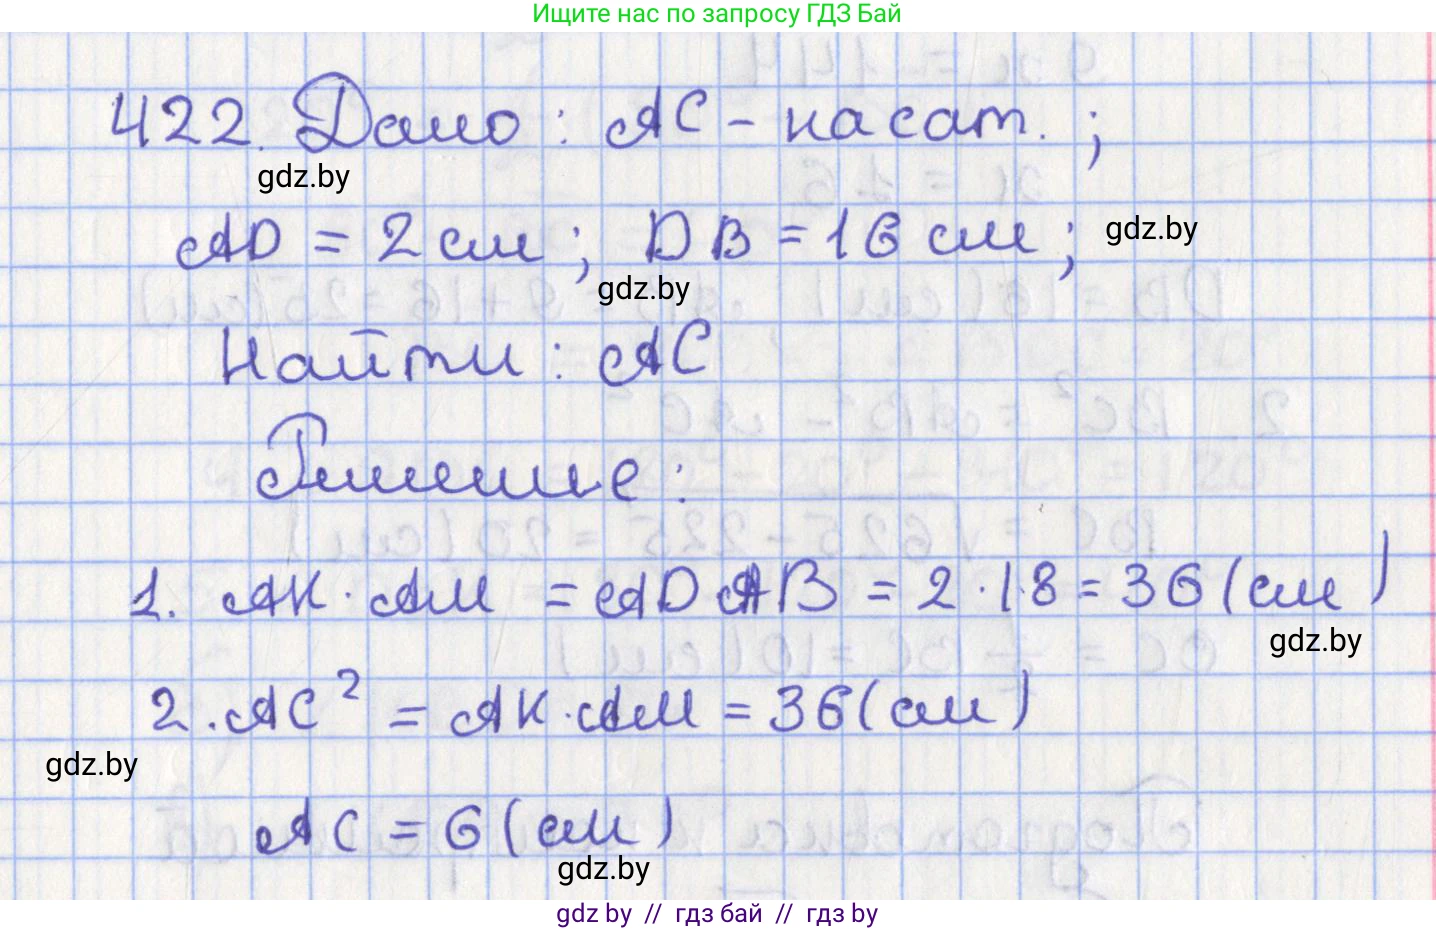 Ищите нас по запросу ГДЗ Бай
422. Дано: AC - касат.;
gdz.by
AD = 2 см; DB = 16 см;
gdz.by
gdz.by
Найти: AC
Решение:
1. AK · AM = AD · AB = 2 · 18 = 36 (см)
gdz.by
2. AC² = AK · AM = 36 (см)
gdz.by
AC = 6 (см)
gdz.by
gdz by // гдз бай // гдз by